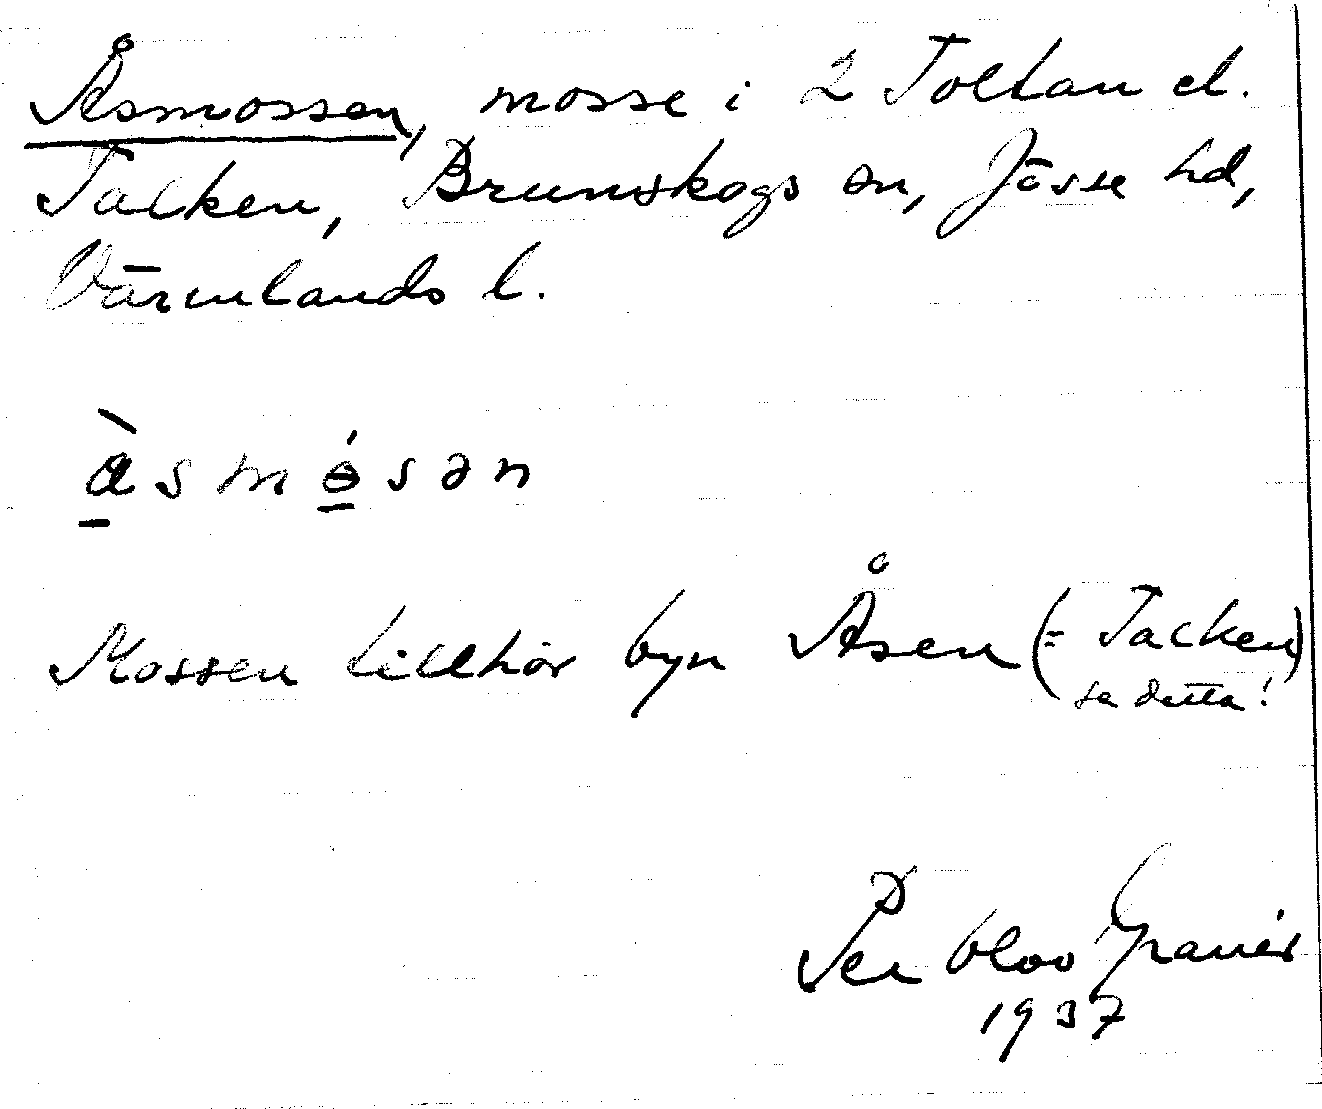 Åsmossen, mosse i 2 Toltan el.
Talken, Brunskogs sn, Jösse hd,
Värmlands l.
Mossen tillhör byn Åsen (= Talken)
se detta!
Per Olov
1937